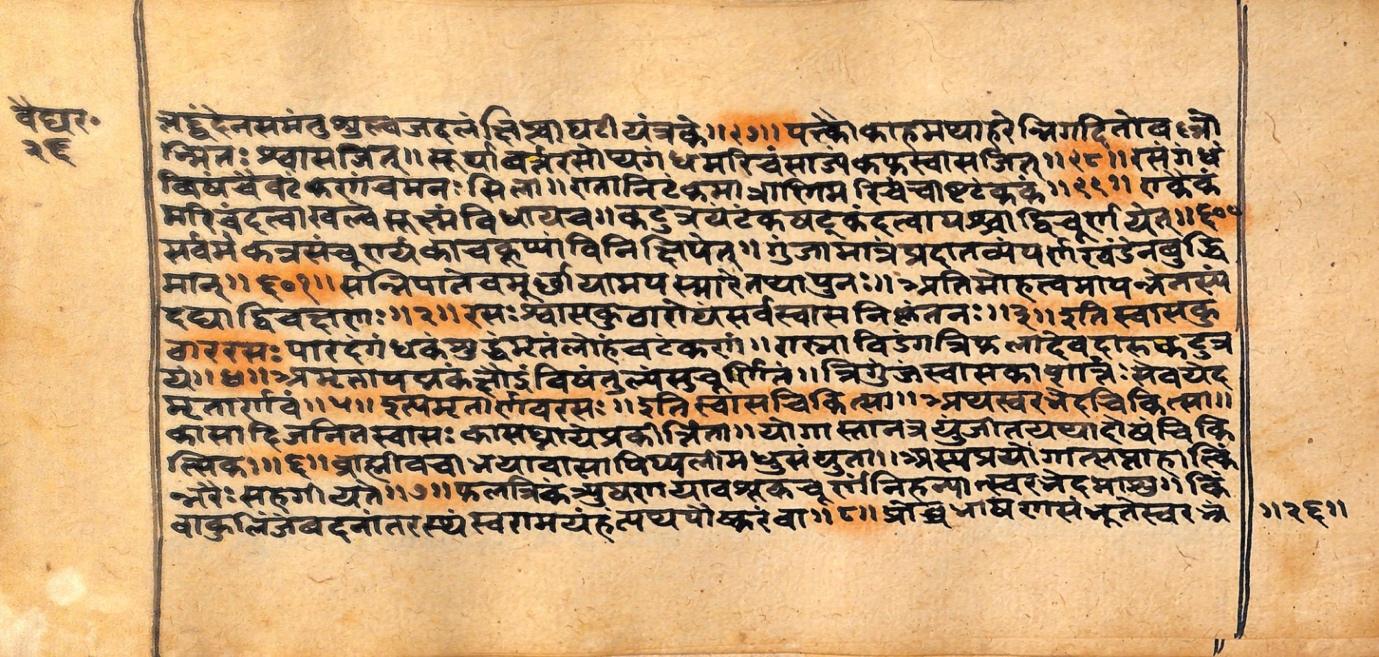 वैद्यर॰
२६
मर्द्दयेदिनसमंतु शुल्बजदलं लिप्त्वाघटी यंत्रके॥९७॥ पक्त्वैकाहमथाहरेन्निगदितो वल्लो
न्मितः श्वासजित्॥ सूर्यावर्त्तरसोप्यगंधमरिचं साज्यं कफस्वासजित्॥९८॥ रसं गंधं
विषं चैव टंकणं च मनःसिला॥ एतानि टंकमात्राणि मरिचं चाष्टटंककं॥९९॥ एकैकं
मरिचं दत्वा खल्वे सूक्ष्मं विधाय च॥ कटुत्रयटंकषट्कं दत्वा पश्चाद्विचूर्णयेत्॥६००
सर्वमेकत्र संचूर्ण्य काचकूप्यां विनिक्षिपेत्॥ गुंजामात्रं प्रदातव्यं पर्णखंडेन बुद्धि
मान्॥६०१॥ सन्निपाते च मूर्छायामपस्मारे तथा पुनः॥ अतिमोहत्वमापन्ने नस्यं
दद्याद्विचक्षणः॥२॥ रसः श्वासकुठारोयं सर्वस्वासनिकृंतनः॥३॥ इति स्वासकु
ठाररसः पारदं गंधकं शुद्धं मृतलोहं च टंकणं॥ रास्ना विडंगत्रिफला देवदारु कटुत्र
यं॥४॥ अमृता पद्मकं क्षौद्रं विषं तुल्यं सुचूर्णितं॥ त्रिगुंजं स्वासकासार्त्तः सेवयेद
मृतार्णवं॥५॥ इत्यमृतार्णवरसः॥ इति स्वासचिकित्सा॥ अथ स्वरभेदचिकित्सा॥
कासादिजनितस्वासः कासघ्नाय प्रकीर्त्तिता॥ योगास्तानत्र युंजीत यथादोषं चिकि
त्सिकः॥६॥ ब्राह्मी वचाभया वासा पिप्पली मधुसंयुता॥ अस्य प्रयोगात्सप्ताहात्किं
न्नरैः सह गीयते॥७॥ फलत्रिकं त्र्यूषणयावशूकचूर्णं निहन्यात्स्वरभेदमाशु॥ किं
वा कुलिंजं वदनांतरस्थं स्वरामयं हंत्यथ पौष्करं वा॥८॥ प्रोच्चभाषणसंभूते स्वरभे
॥२६॥